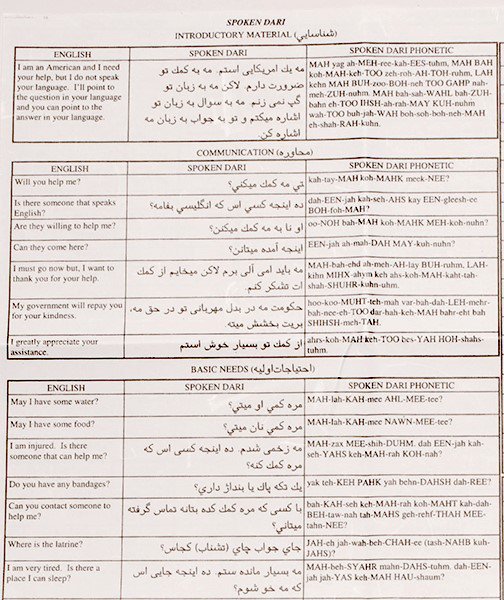 SPOKEN DARI
INTRODUCTORY MATERIAL (شناسایی)
ENGLISH
SPOKEN DARI
SPOKEN DARI PHONETIC
I am an American and I need
your help, but I do not speak
your language. I'll point
to the question in your language
and you can point to the
answer in your language.
مه یك امریكایی استم. مه به كمك تو
ضرورت دارم. لاكن مه به زبان تو
گپ نمی زنم. مه به سوال به زبان تو
اشاره میكنم و تو به جواب به زبان مه
اشاره كن.
MAH yag ah-MEH-ree-kah-EES-tuhm, MAH BAH
koh-MAH-keh-TOO zeh-roh-AH-TOH-ruhm, LAH
kehn MAH BUH-zoo-BOH-neh TOO GAHP nah-
meh-ZUH-nuhm. MAH bah-sah-WAHL bah-ZUH-
bahn eh-TOO IHSH-ah-rah-MAY KUH-nuhm
wah-TOO buh-jah-WAH boh-soh-boh-neh-MAH
eh-shah-RAH-kuhn.
COMMUNICATION (محاوره)
ENGLISH
SPOKEN DARI
SPOKEN DARI PHONETIC
Will you help me?
تي مه كمك میكني؟
kah-tay-MAH koh-MAHK meek-NEE?
Is there someone that speaks
English?
ده اینجه كسي اس كه انگلیسي بفامه؟
dah-EEN-jah kah-seh-AHS kay EEN-gleesh-ee
BOH-foh-MAH?
Are they willing to help me?
او نا به مه كمك میكنن؟
oo-NOH bah-MAH koh-MAHK MEH-koh-nuhn?
Can they come here?
اینجه آمده میتانن؟
EEN-jah ah-mah-DAH MAY-kuh-nuhn?
I must go now but, I want to
thank you for your help.
مه باید امی آلی برم لاكن میخایم از كمك
ات تشكر كنم.
MAH-bah-ehd ah-meh-AH-lay BUH-ruhm, LAH-
kihn MIHX-ahym keh ahs-koh-MAH-kaht-tah-
shah-SHUHR-kuhn-uhm.
My government will repay you
for your kindness.
حكومت مه در بدل مهربانی تو در حق مه،
بریت بخشش میته
hoo-koo-MUHT-teh-mah var-bah-dah-LEH-mehr-
bah-nee-eh-TOO dar-hah-keh-MAH bahr-eht bah
SHIHSH-meh-TAH.
I greatly appreciate your
assistance.
از كمك تو بسیار خوش استم
ahrs-koh-MAH keh-TOO bes-YAH HOH-shahs-
tuhm.
BASIC NEEDS (احتیاجات اولیه)
ENGLISH
SPOKEN DARI
SPOKEN DARI PHONETIC
May I have some water?
مره كمي او میتي؟
MAH-lah-KAH-mee AHL-MEE-tee?
May I have some food?
مره كمي نان میتي؟
MAH-lah-KAH-mee NAWN-MEE-tee?
I am injured. Is there
someone that can help me?
مه زخمی شدم. ده اینجه كسی اس كه
مره كمك كنه؟
MAH-zax MEE-shih-DUHM. dah EEN-jah kah-
seh-YAHS keh-MAH-rah KOH-nah?
Do you have any bandages?
یك تكه پاك یا بنداژ داري؟
yak teh-KEH PAHK yah behn-DAHSH dah-REE?
Can you contact someone to
help me?
با كسی كه مره كمك كده بتانه تماس گرفته
میتاني؟
bah-KAH-seh keh-MAH-rah koh-MAHT kah-dah-
BEH-taw-nah tah-MAHS geh-rehf-THAH MEE-
tahn-NEE?
Where is the latrine?
جاي جواب چاي (تشناب) كجاس؟
JAH-eh jah-wah-beh-CHAH-ee (tash-NAHB kuh-
JAHS)?
I am very tired. Is there a
place I can sleep?
مه بسیار مانده ستم. ده اینجه جایی اس
كه مه خو شوم؟
MAH-beh-SYAHR mahn-DAHS-tuhm. dah-EEN-
jah jah-YAS keh-MAH HAU-shaum?